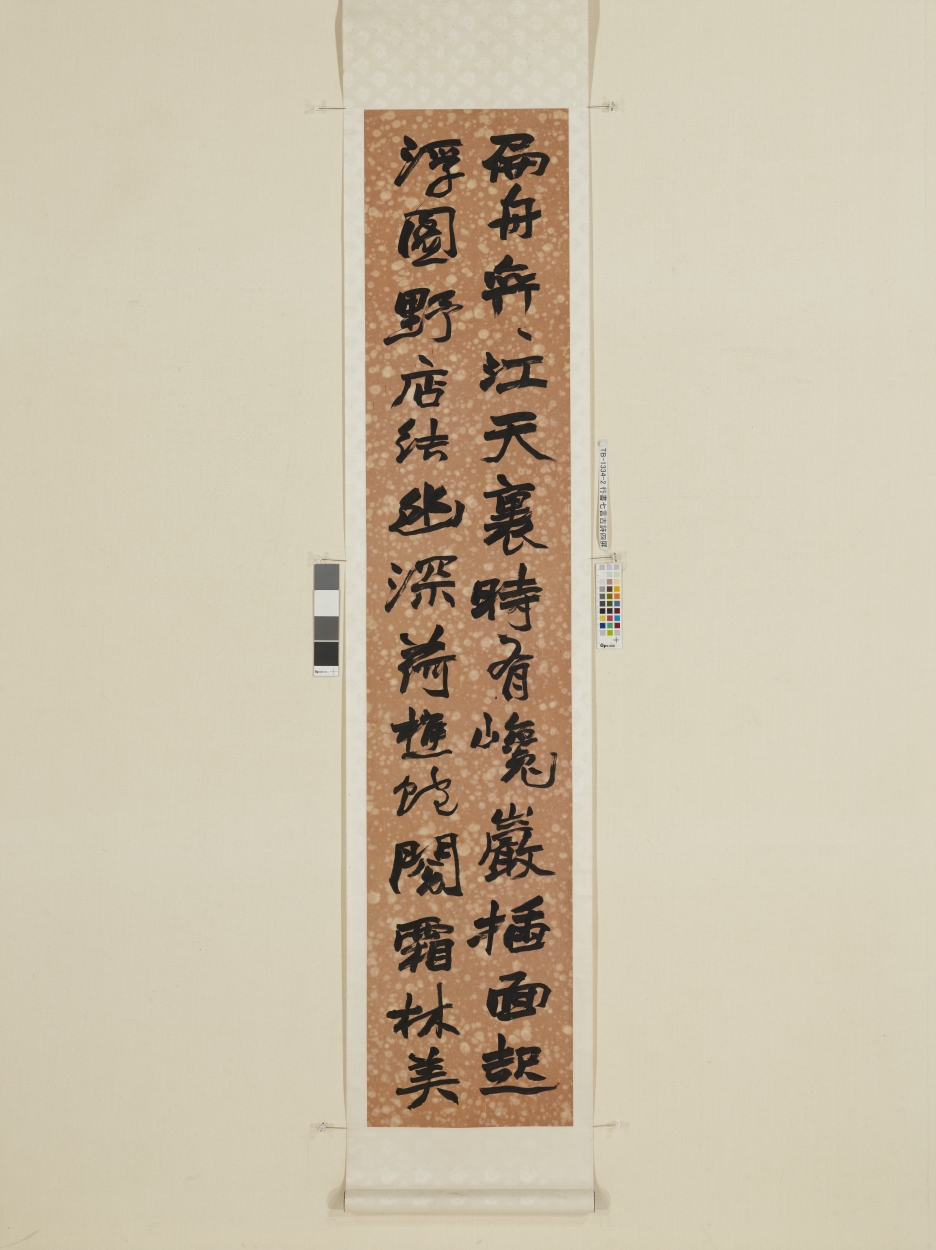 扁舟弈〻江天裏時有巉巖插面起
浮圖野店結幽深荷樵蛇閱霜林美
TB-1334-2 行書七言古詩四屏